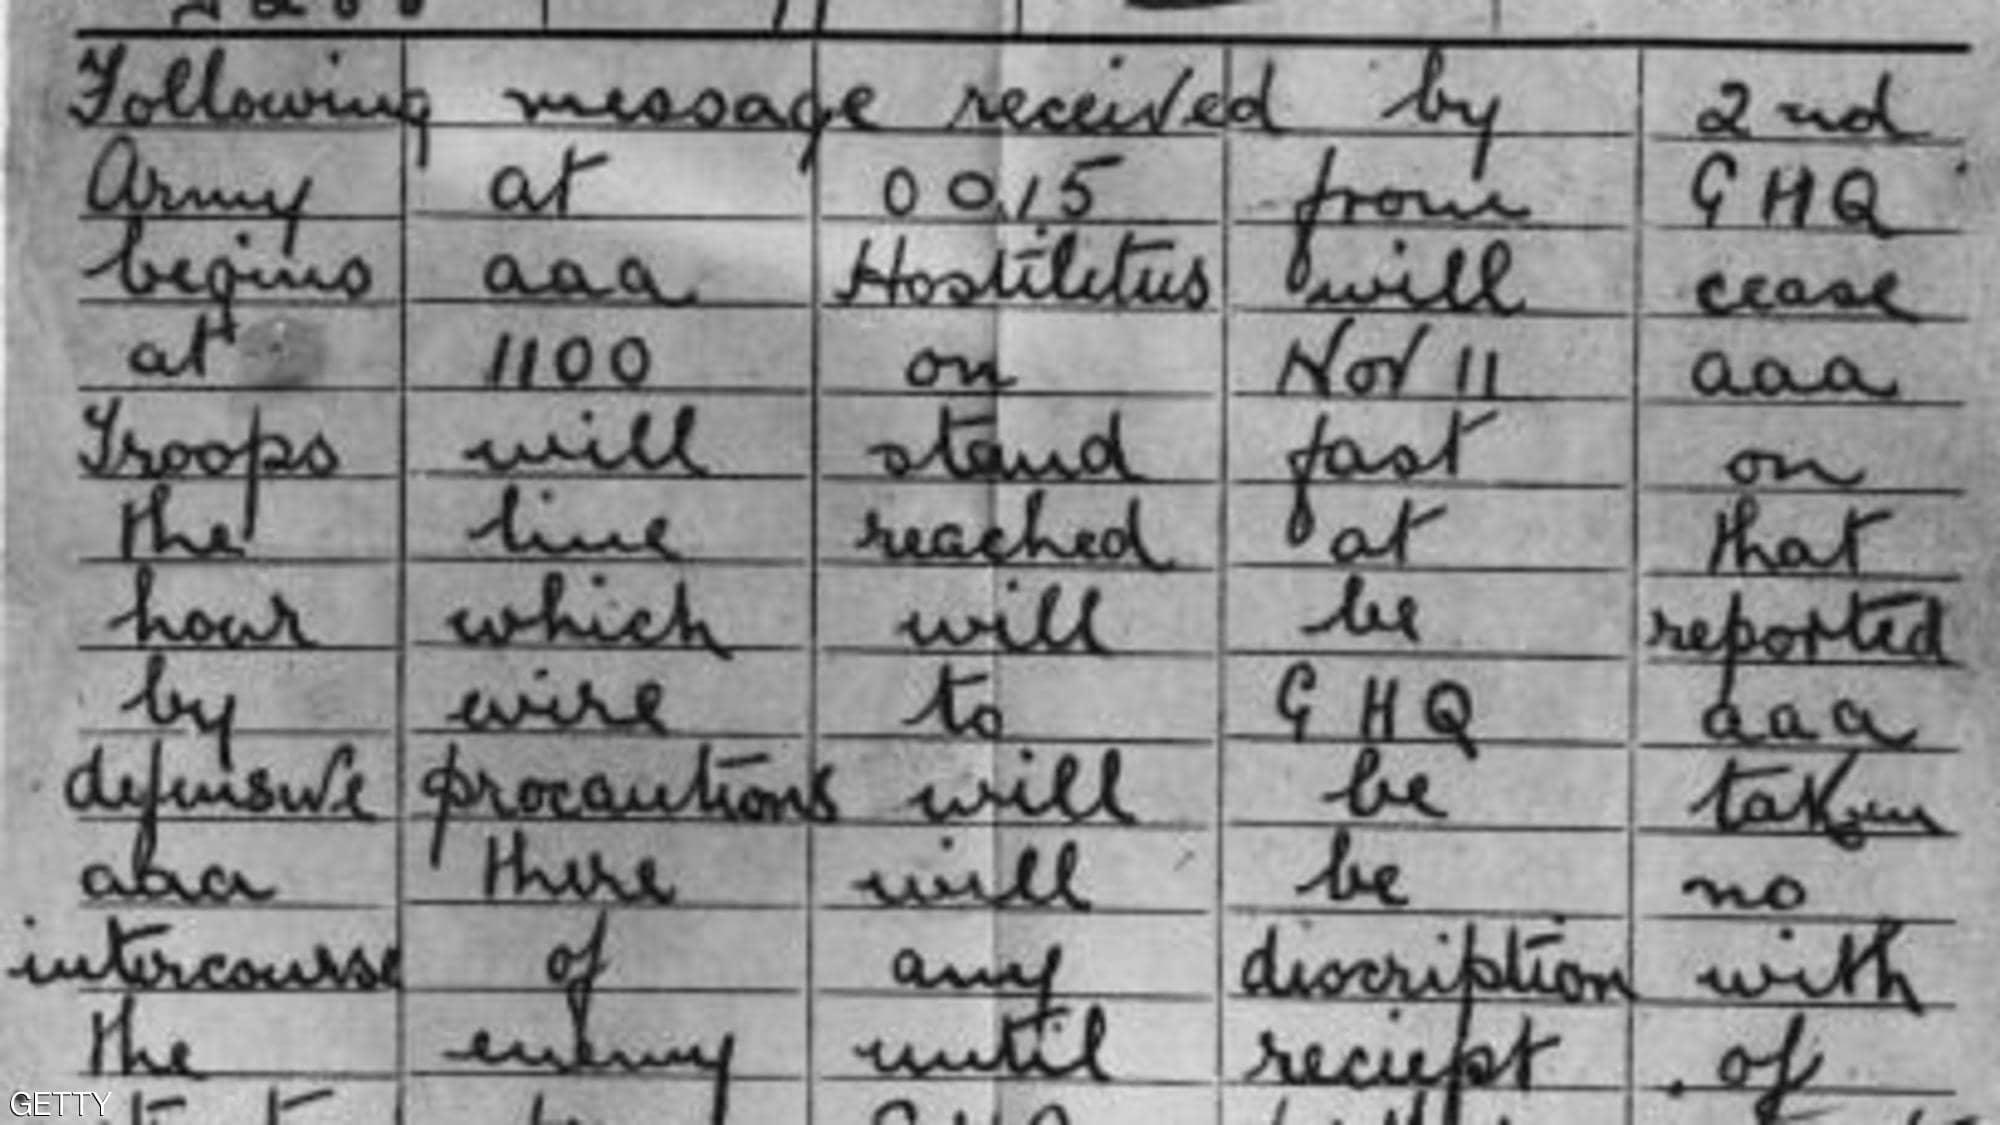 Following message received by 2nd
Army at 0015 from GHQ
begins aaa Hostilities will cease
at 1100 on Nov 11 aaa
Troops will stand fast on
the line reached at that
hour which will be reported
by wire to GHQ aaa
defensive precautions will be taken
aaa there will be no
intercourse of any discription with
the enemy until reciept of
GETTY